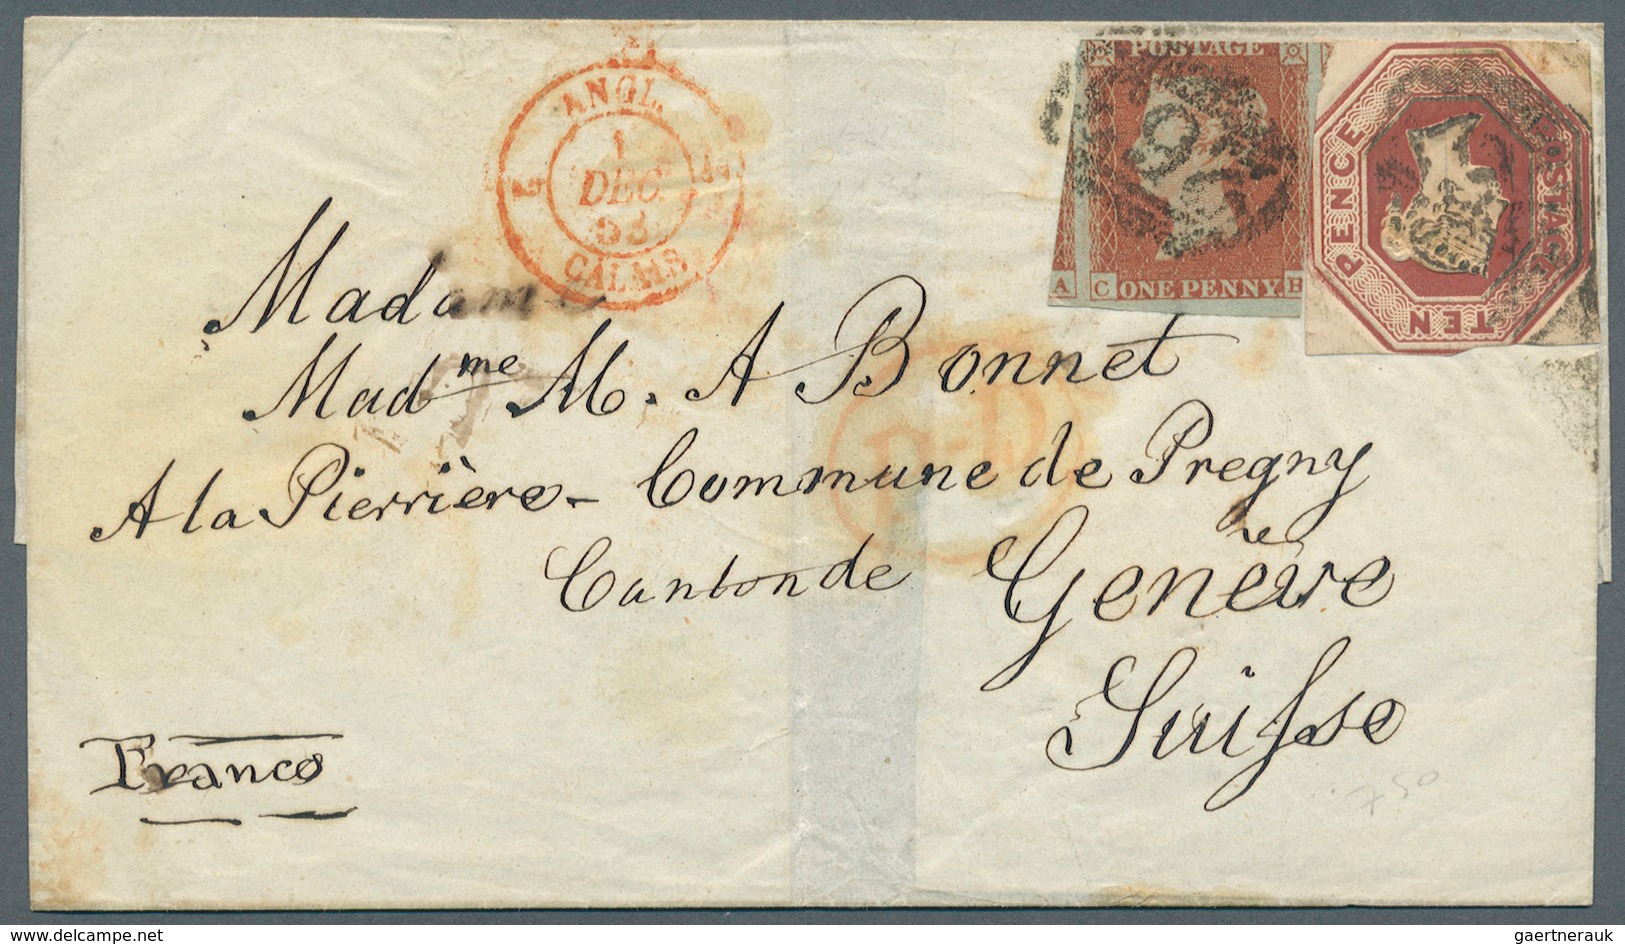 ANGL.
1
DEC.
53
CALAIS
POSTAGE
A
C ONE PENNY. B
POSTAGE
TEN
PENCE
P.D.
Madame
Madme M. A Bonnet
A la Pierrière - Commune de Pregny
Canton de Genève
Suisse
Franco
750
delcampe.net
gaertnerauk